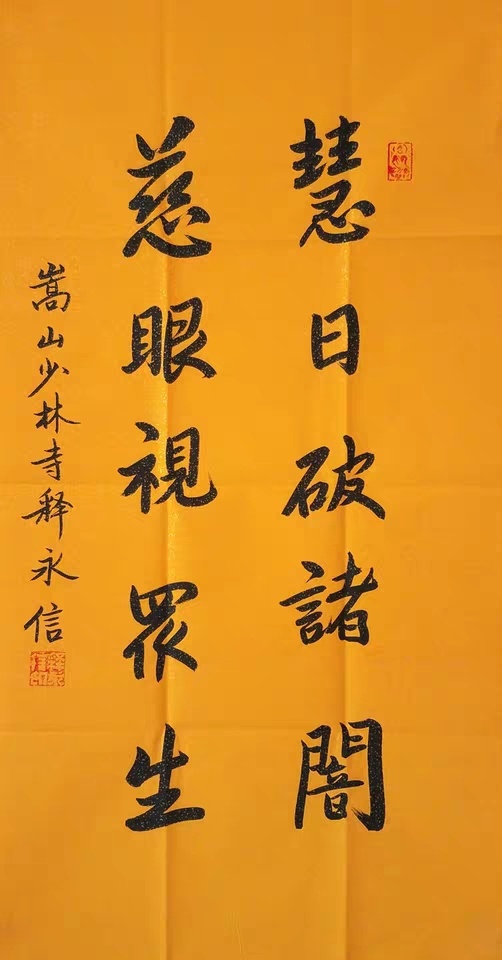 慧日破諸闇
慈眼視眾生
嵩山少林寺释永信